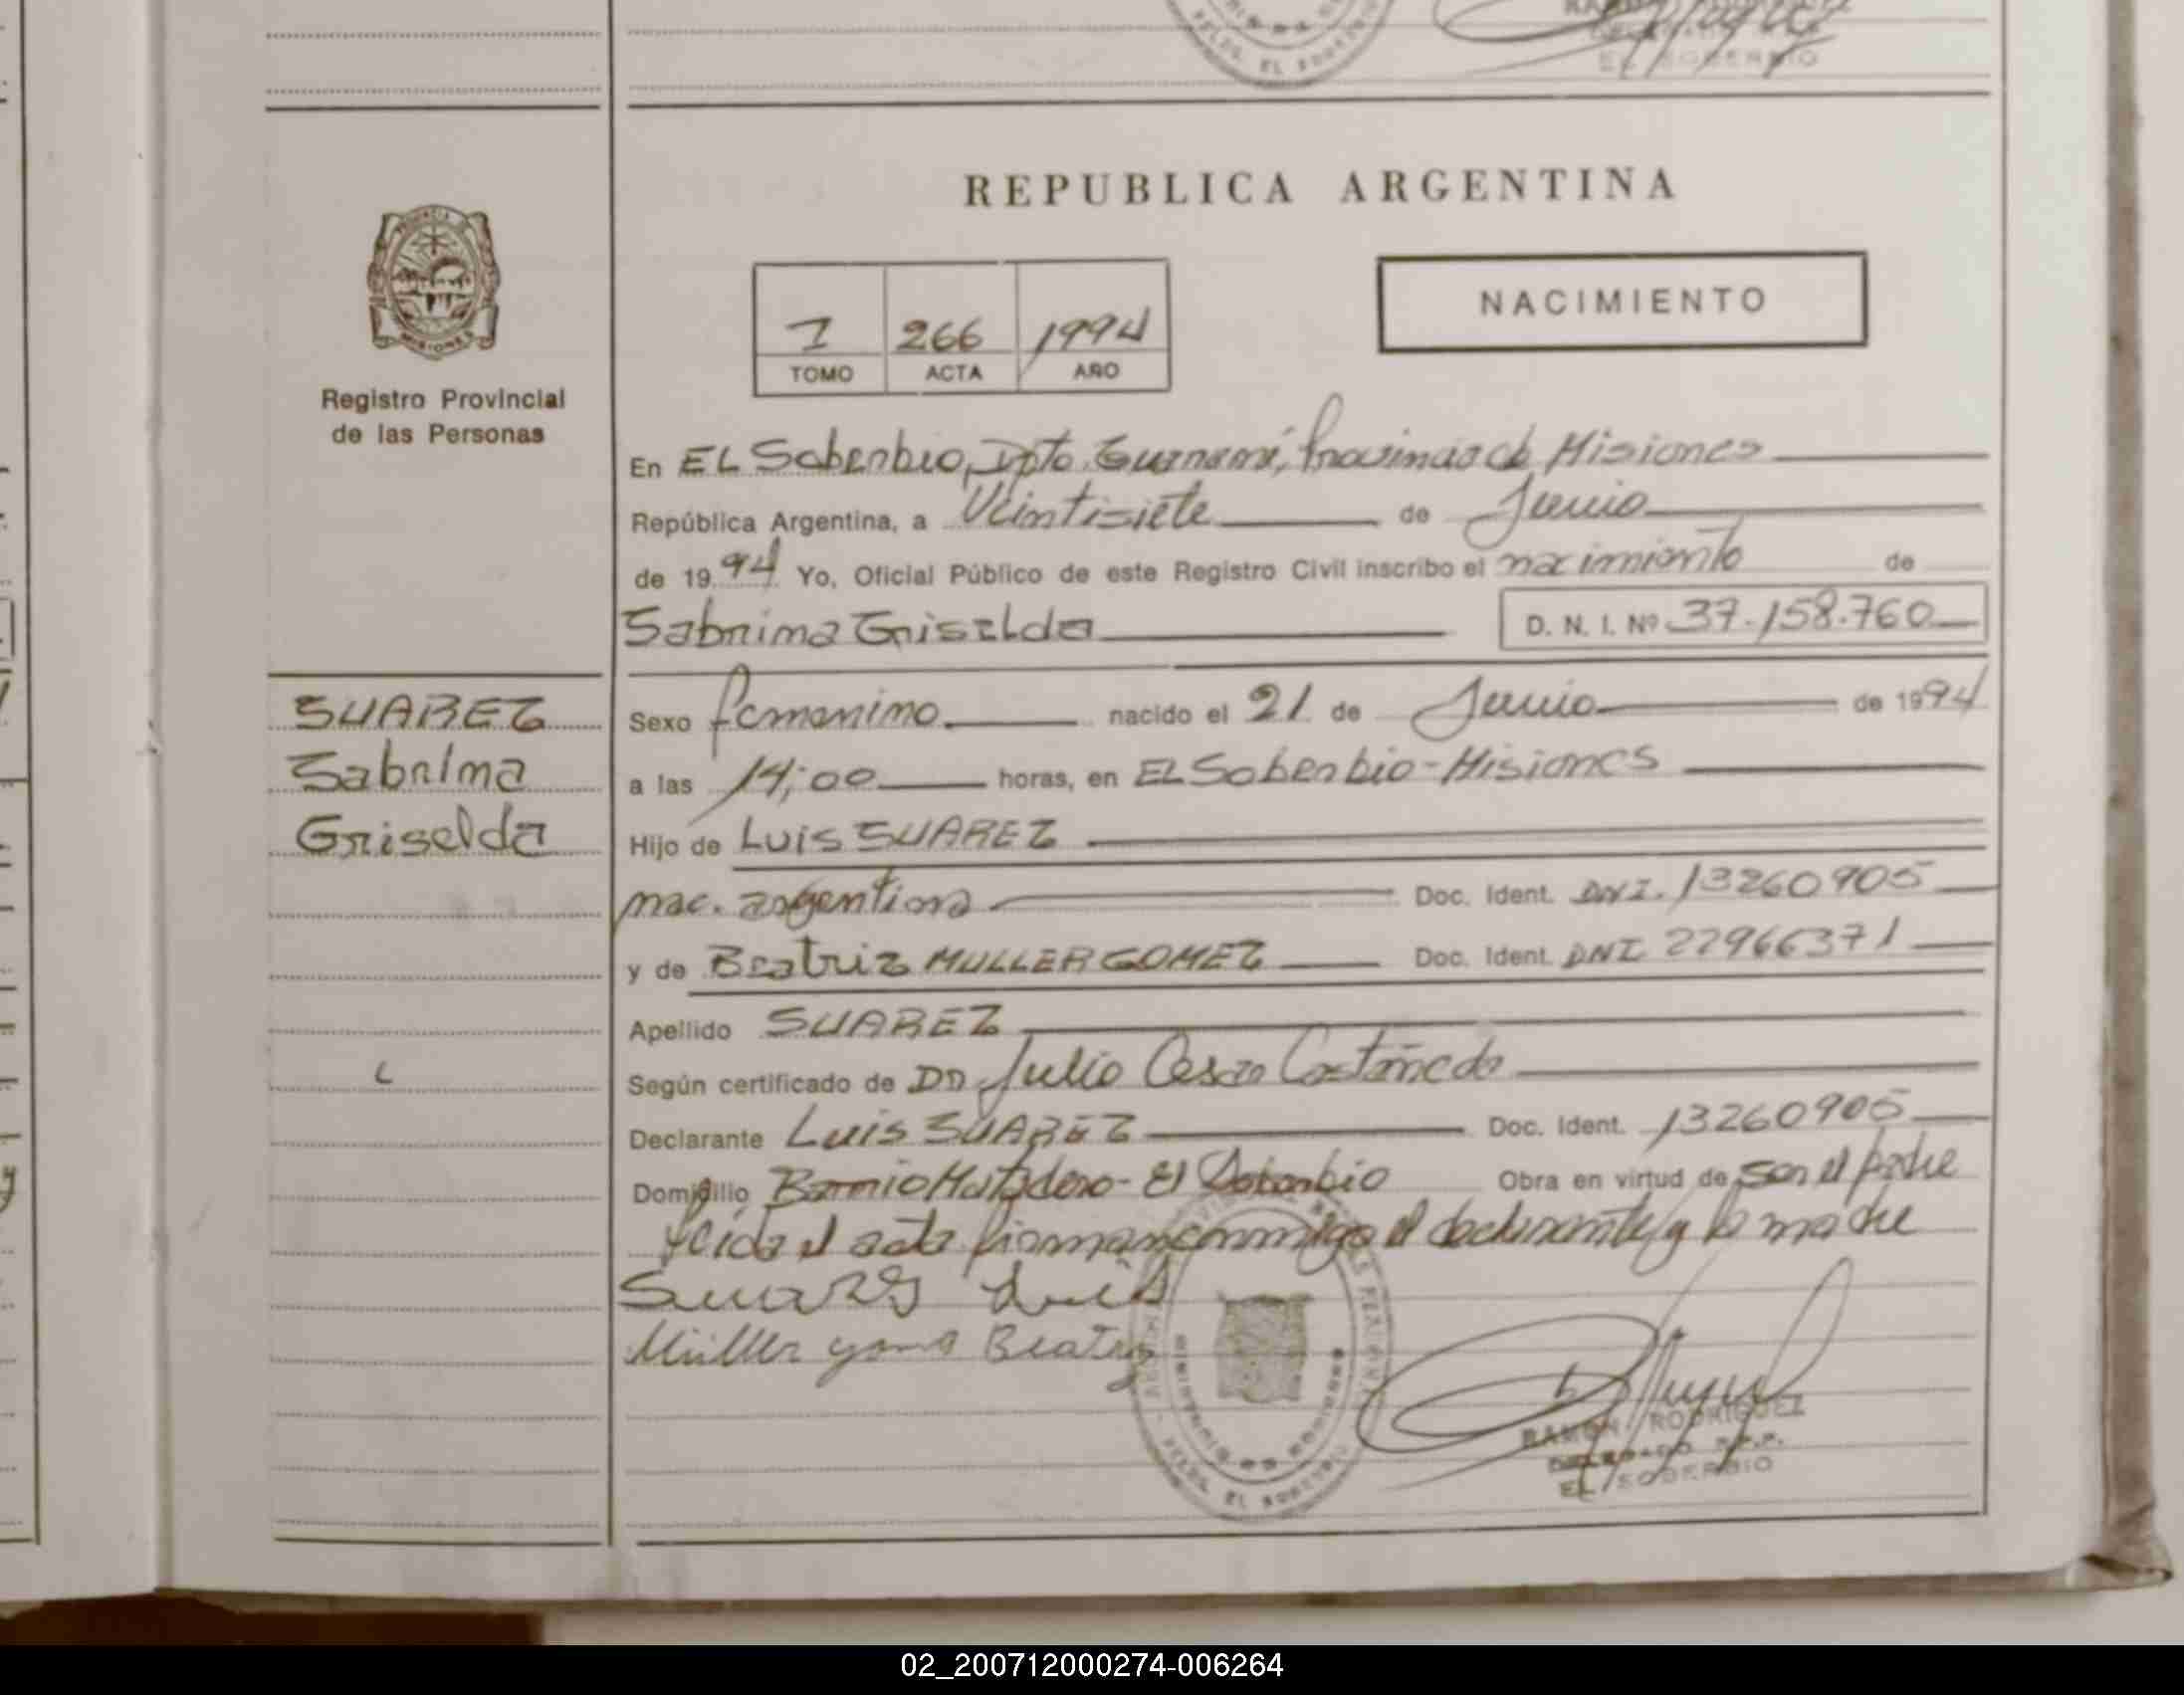 EL SOBERBIO
REPUBLICA ARGENTINA
NACIMIENTO
I 266 1994
TOMO ACTA AÑO
MISIONES
Registro Provincial
de las Personas
En EL Soberbio, Dpto. Guaraní, Provincia de Misiones
República Argentina, a Veintisiete de Junio
de 1994 Yo, Oficial Público de este Registro Civil inscribo el nacimiento de
Sabrina Griselda D. N. I. Nº 37.158.760
SUAREZ
Sabrina
Griselda
Sexo femenino nacido el 21 de Junio de 1994
a las 14;00 horas, en EL Soberbio-Misiones
Hijo de LUIS SUAREZ
nac. argentina Doc. Ident. DNI. 13260905
y de Beatriz MULLER GOMEZ Doc. Ident. DNI 22966371
Apellido SUAREZ
Según certificado de Dr Julio Cesar Castañeda
Declarante Luis SUAREZ Doc. Ident. 13260905
Domicilio Barrio Matadero - El Soberbio Obra en virtud de ser el padre
Leida el acta firman conmigo el declarante y la madre
Suarez Luis
Müller gomes Beatriz
RAMON RODRIGUEZ
DELEGADO R.P.P.
EL SOBERBIO
02_200712000274-006264